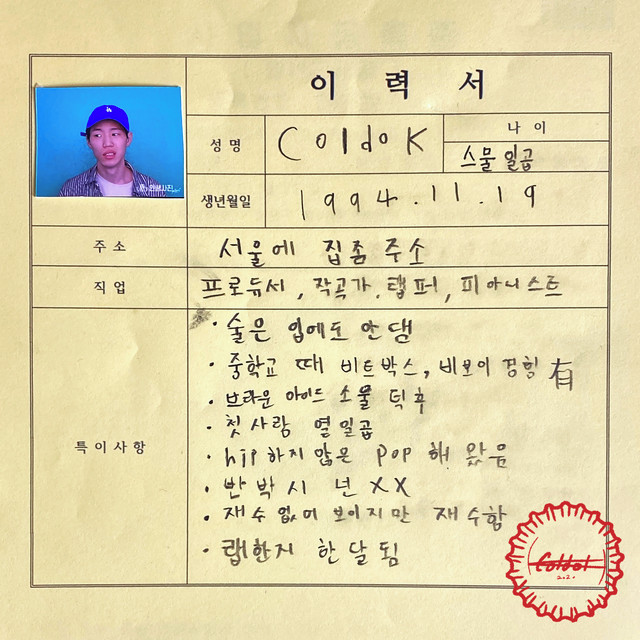 이 력 서
성 명
Coldok
나 이
스물 일곱
생년월일
1994.11.19
주 소
서울에 집좀주소
직 업
프로듀서, 작곡가, 랩퍼, 피아니스트
특이사항
· 술은 입에도 안댐
· 중학교 때 비트박스, 비보이 경험 有
· 브라운 아이드 소울 덕후
· 첫사랑 열일곱
· hip하지 않은 pop 해 왔음
· 반박시 넌 XX
· 재수 없어 보이지만 재수함
· 랩한지 한달됨
2020.